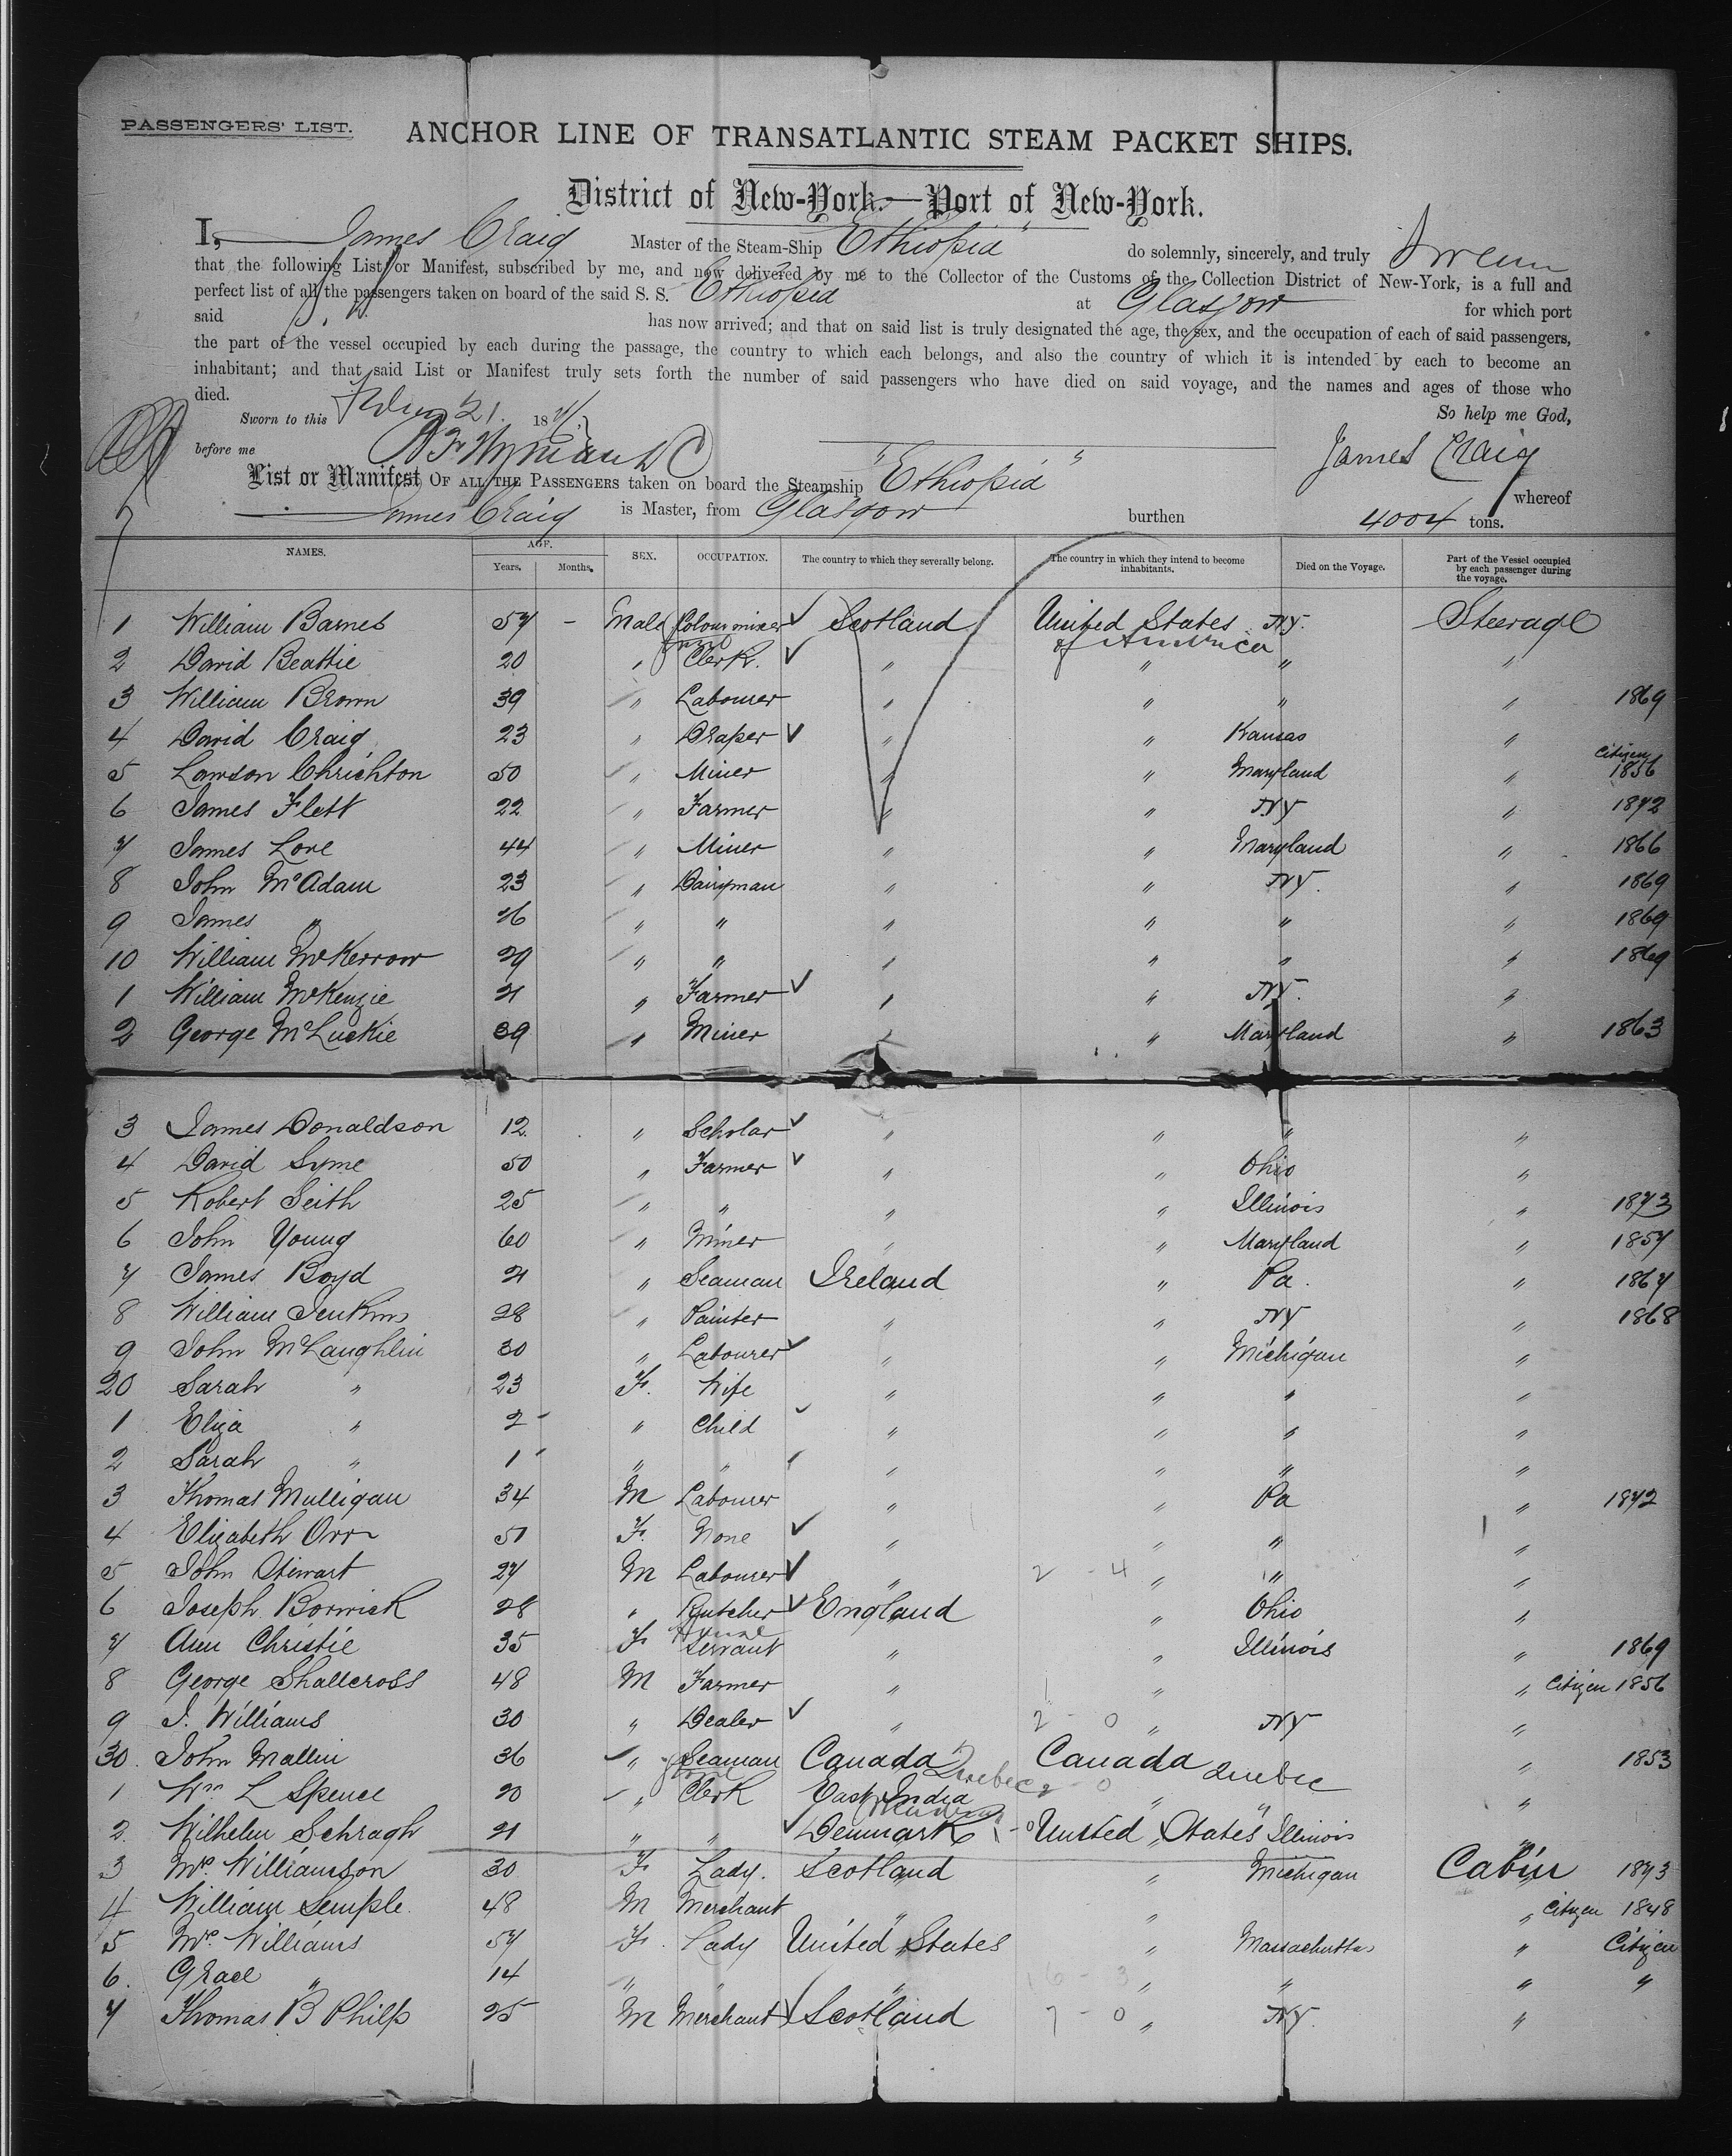 PASSENGERS' LIST.
ANCHOR LINE OF TRANSATLANTIC STEAM PACKET SHIPS.
District of New-York.—Port of New-York.
I, James Craig Master of the Steam-Ship "Ethiopia" do solemnly, sincerely, and truly Swear
that the following List or Manifest, subscribed by me, and now delivered by me to the Collector of the Customs of the Collection District of New-York, is a full and
perfect list of all the passengers taken on board of the said S. S. Ethiopia at Glasgow for which port
said has now arrived; and that on said list is truly designated the age, the sex, and the occupation of each of said passengers,
the part of the vessel occupied by each during the passage, the country to which each belongs, and also the country of which it is intended by each to become an
inhabitant; and that said List or Manifest truly sets forth the number of said passengers who have died on said voyage, and the names and ages of those who
died. So help me God,
Sworn to this 21. 187
before me James Craig
List or Manifest OF ALL THE PASSENGERS taken on board the Steamship "Ethiopia" whereof
James Craig is Master, from Glasgow burthen 4004 tons.
NAMES. AGE. Years. Months. SEX. OCCUPATION. The country to which they severally belong. The country in which they intend to become inhabitants. Died on the Voyage. Part of the Vessel occupied by each passenger during the voyage.
1 William Barnes 57 - Male Colour mixer Scotland United States of America NY. Steerage
2 David Beattie 20 " Clerk. " " " "
3 William Brown 39 " Labourer " " " " 1869
4 David Craig 23 " Draper " " Kansas "
5 Lawson Chrichton 50 " Miner " " Maryland " Citizen 1856
6 James Flett 22 " Farmer " " NY " 1872
7 James Love 44 " Miner " " Maryland " 1866
8 John McAdam 23 " Dairyman " " NY. " 1869
9 James " 26 " " " " " " 1869
10 William McKerrow 29 " " " " " " 1869
1 William McKenzie 21 " Farmer " " NY. "
2 George McLuckie 39 " Miner " " Maryland " 1863
3 James Donaldson 12 " Scholar " " " "
4 David Syme 50 " Farmer " " Ohio "
5 Robert Seith 25 " " " " Illinois " 1873
6 John Young 60 " Miner " " Maryland " 1857
7 James Boyd 21 " Seaman Ireland " Pa. " 1867
8 William Jenkins 28 " Painter " " NY " 1868
9 John McLaughlin 30 " Labourer " " Michigan "
20 Sarah " 23 F. Wife " " " "
1 Eliza " 2 - " Child " " " "
2 Sarah " 1 " " " " " "
3 Thomas Mulligan 34 M Labourer " " Pa " 1872
4 Elizabeth Orr 51 F. None " " " "
5 John Stewart 27 M Labourer " 2 - 4 " " "
6 Joseph Borwick 28 " Butcher England " Ohio "
7 Ann Christie 35 F Servant " " Illinois " 1869
8 George Shallcross 48 M Farmer " " " Citizen 1856
9 J. Williams 30 " Dealer " 2 - 0 " NY "
30. John Mallin 36 " Seaman Canada Quebec Canada Quebec " 1853
1 Wm L Spence 20 " Clerk East India 2 - 0 " " "
2. Wilhelm Schragh 21 " " Denmark 1 - 0 United States Illinois "
3 Mrs Williamson 30 F Lady. Scotland " Michigan Cabin 1873
4 William Semple. 48 M Merchant " " " Citizen 1848
5 Mrs Williams 57 F. Lady United States " Massachusetts " Citizen
6. Grace " 14 " " " 6 - 3 " " " "
7 Thomas B Philp 25 M Merchant Scotland 7 - 0 " NY. "